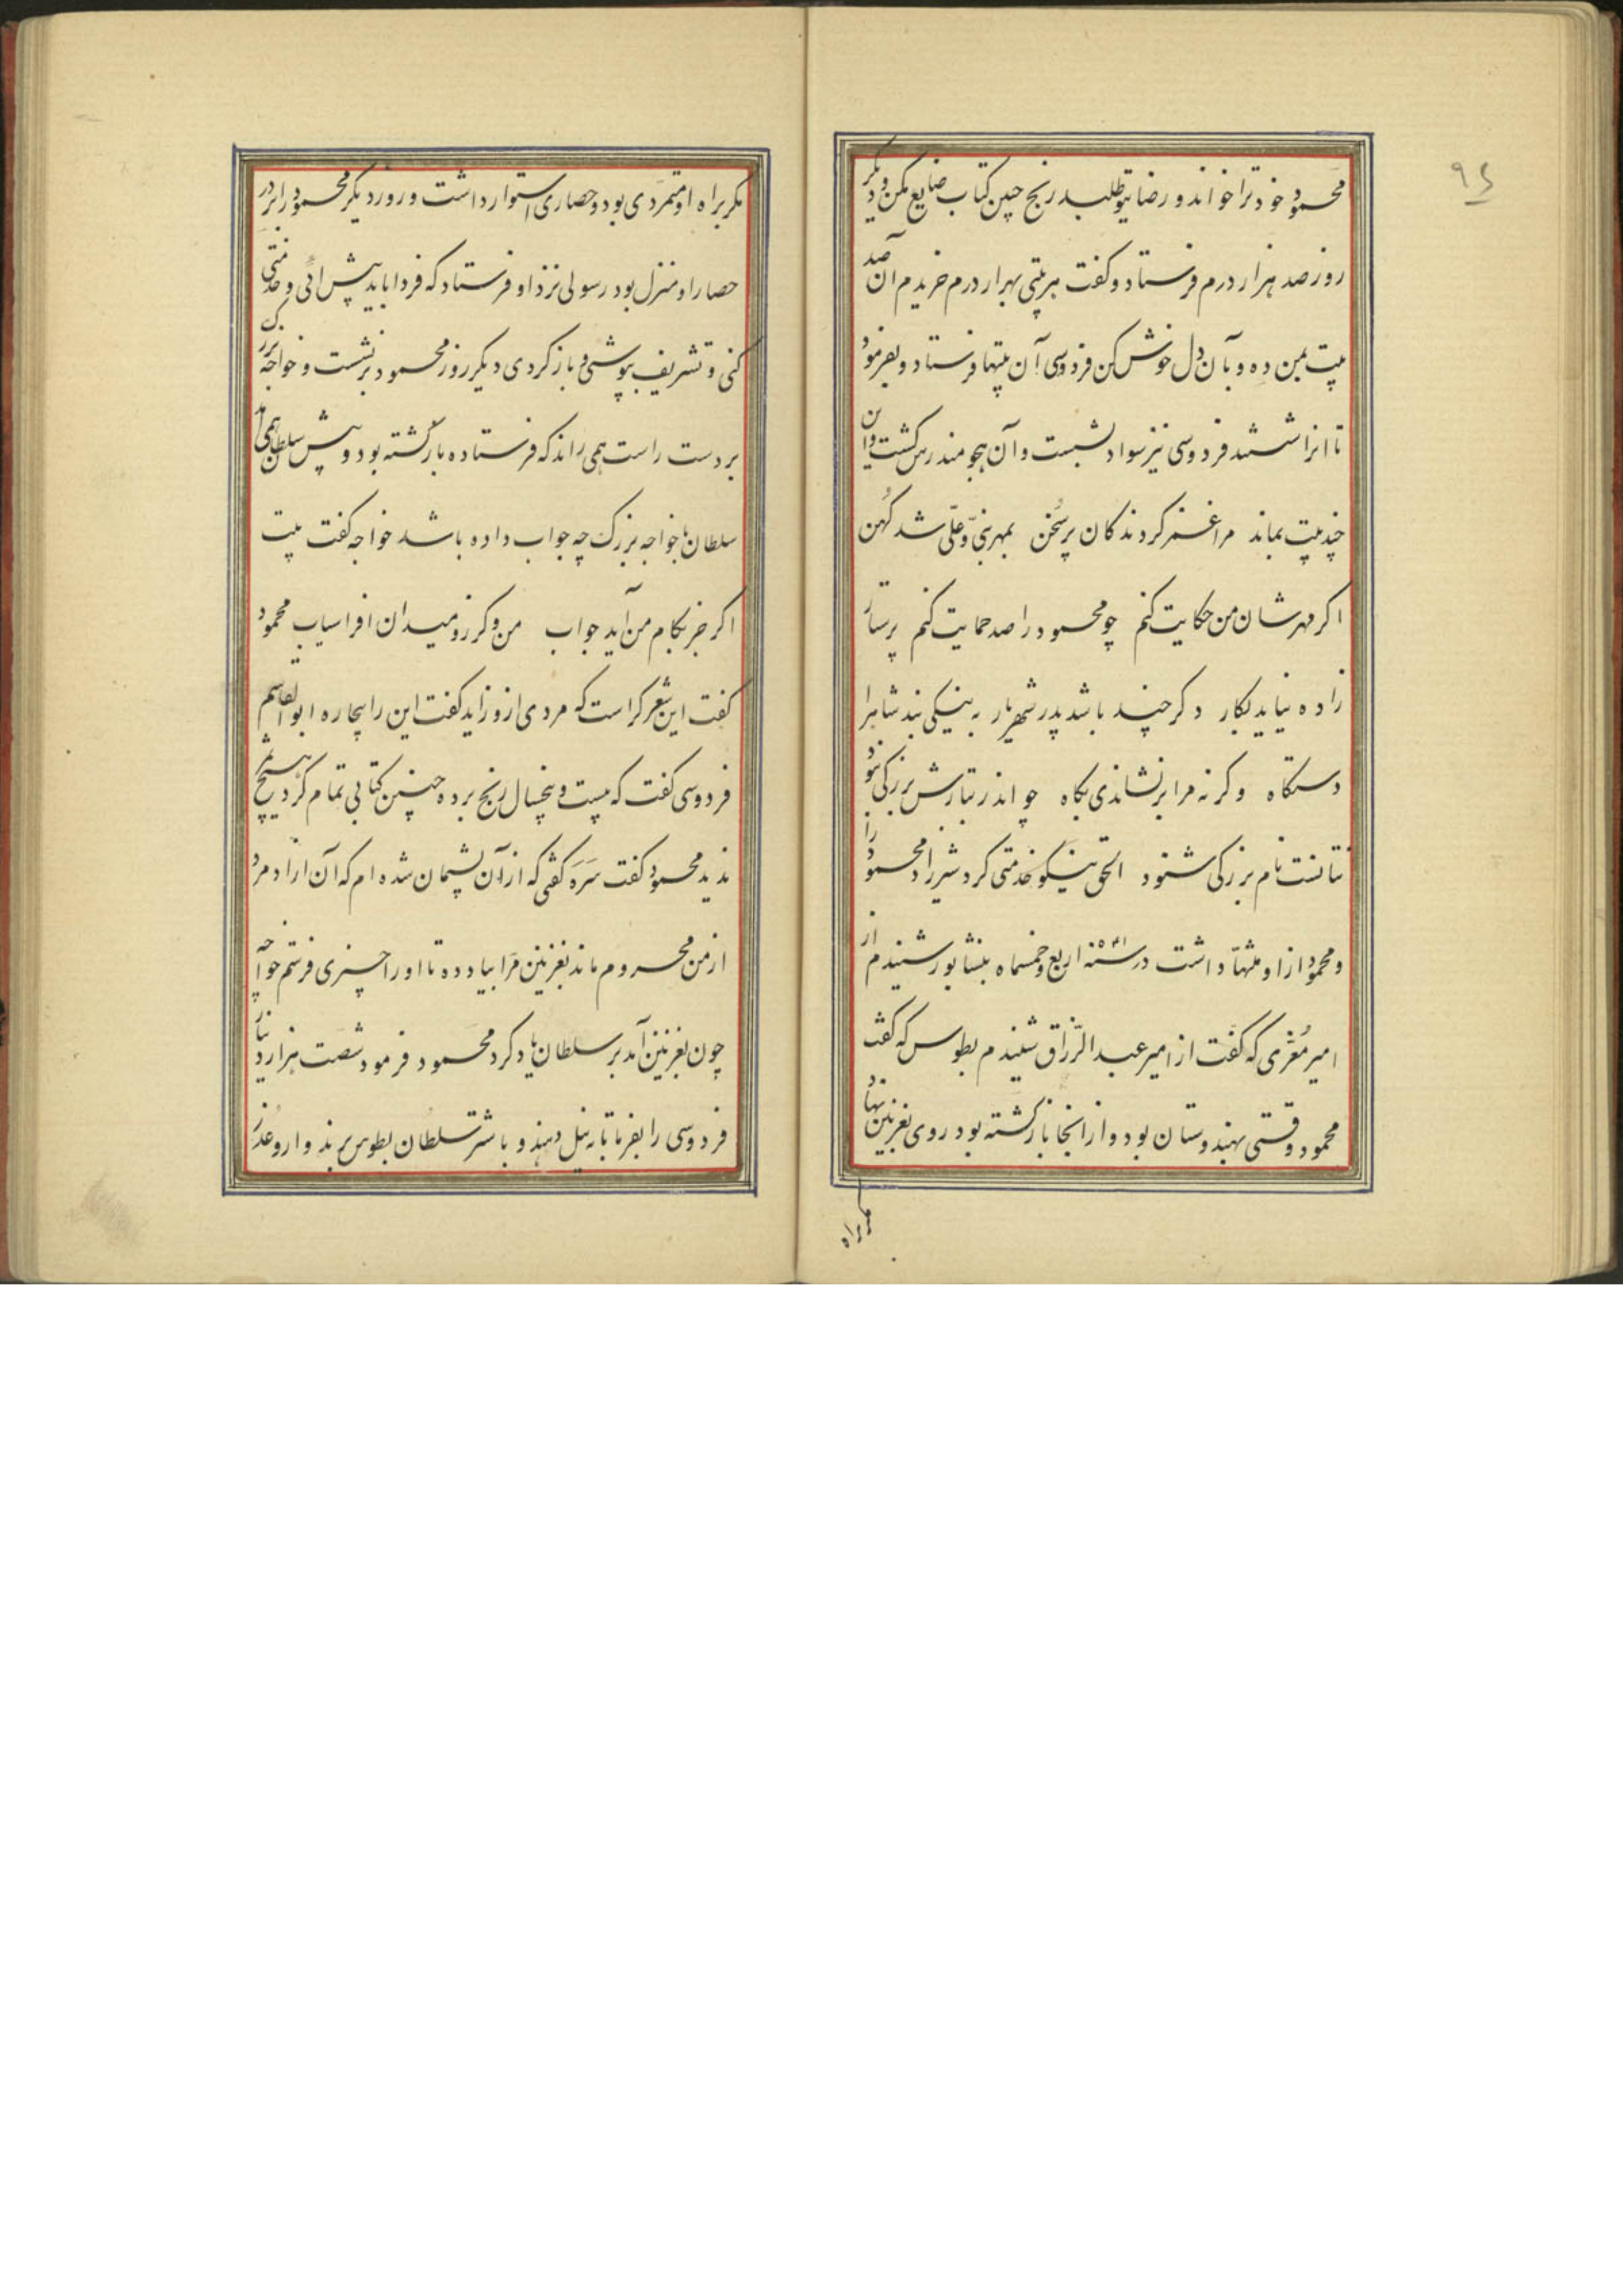 ۹٤
محمود خود ترا خواند و رضا بتو طلبد رنج چنین کتاب ضایع مکن و دیگر
روز صد هزار درم فرستاد و کفت هر بیتی بهزار درم خریدم آن صد
بیت بمن ده و بآن دل خوش کن فردوسی آن بیتها فرستاد و بفرمود
تا انرا شستند فردوسی نیز سواد بشست و آن هجو مندرس کشت و از آن
چند بیت بماند مرا غمز کردند کان پر سخن بمهر نبی و علی شد کهن
اکر مهرشان من حکایت کنم چو محمود را صد حمایت کنم پرستار
زاده نیاید بکار و کر چند باشد پدر شهریار به نیکی نبد شاه را
دستکاه و کر نه مرا بر نشاندی بکاه چو اندر تبارش بزرکی نبود
نتانست نام بزرکی شنود الحق نیکو خدمتی کرد شیرزاد محمود را
و محمود از او منتها داشت در سنه ۵۱۴ اربع و خمسماه بنشابور شنیدم از
امیر معزی که کفت از امیر عبد الرزاق شنیدم بطوس که کفت
محمود وقتی بهندوستان بود و از انجا باز کشته بود روی بغزنین نهاد
مکر براه
مکر براه او متمردی بود و حصاری استوار داشت و روز دیکر محمود را بر در
حصار او منزل بود رسولی نزد او فرستاد که فردا باید پیش ائی و خدمتی
کنی و تشریف بپوشی و باز کردی دیکر روز محمود برنشست و خواجه بزرک
بر دست راست همی راند که فرستاده بازکشته بود و پیش سلطان همی آمد
سلطان با خواجه بزرک چه جواب داده باشد خواجه کفت بیت
اکر جز بکام من آید جواب من و کرز و میدان افراسیاب محمود
کفت این شعر کراست که مردی ازو زاید کفت این را بیچاره ابوالقاسم
فردوسی کفت که بیست و پنجسال رنج برده و چنین کتابی تمام کرد و هیچ
ندید محمود کفت سره کفتی که از آن پشیمان شده ام که آن ازاد مرد
از من محروم ماند بغزنین مرا بیاد ده تا او را چیزی فرستم خواجه
چون بغزنین آمد بر سلطان یاد کرد محمود فرمود شصت هزار دینار
فردوسی را بفرما تا به نیل دهند و با شتر سلطان بطوس برند و ازو عذر